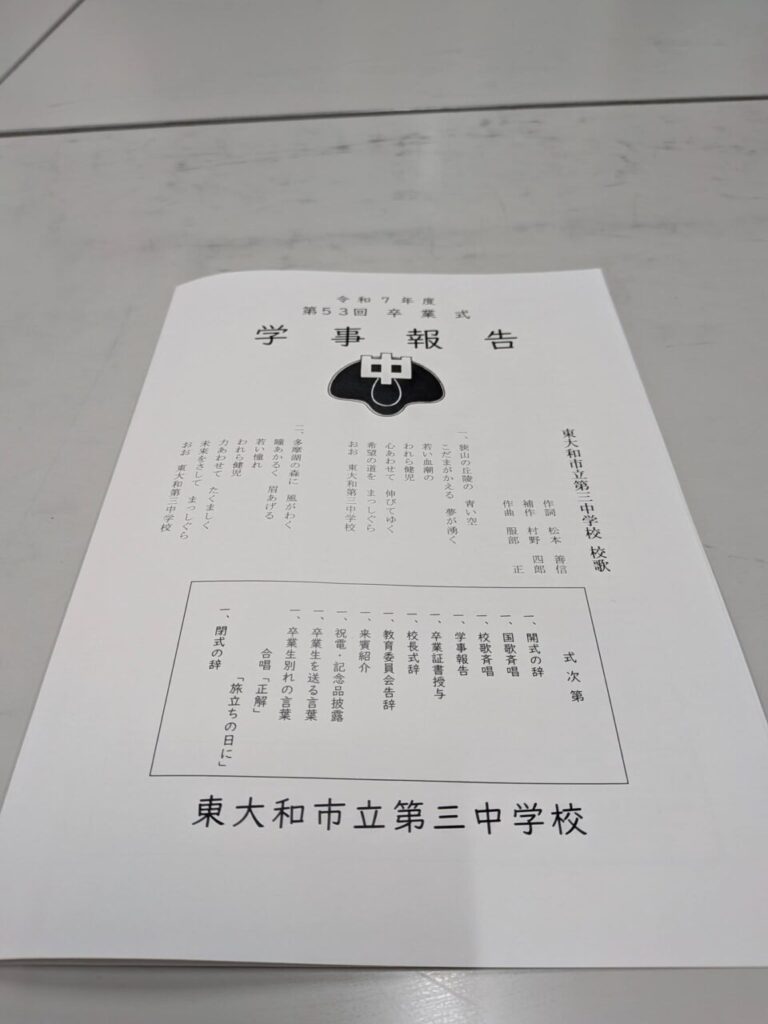 令和7年度
第53回 卒業式
学事報告
中
東大和市立第三中学校 校歌
作詞 松本 善信
補作 村野 四郎
作曲 服部 正
一、狭山の丘陵の 青い空
こだまがかえる 夢が湧く
若い血潮の
われら健児
心あわせて 伸びてゆく
希望の道を まっしぐら
おお 東大和第三中学校
二、多摩湖の森に 風がわく
瞳あかるく 眉あげる
若い憧れ
われら健児
力あわせて たくましく
未来をさして まっしぐら
おお 東大和第三中学校
式次第
一、開式の辞
一、国歌斉唱
一、校歌斉唱
一、学事報告
一、卒業証書授与
一、校長式辞
一、教育委員会告辞
一、来賓紹介
一、祝電・記念品披露
一、卒業生を送る言葉
一、卒業生別れの言葉
合唱「正解」
「旅立ちの日に」
一、閉式の辞
東大和市立第三中学校